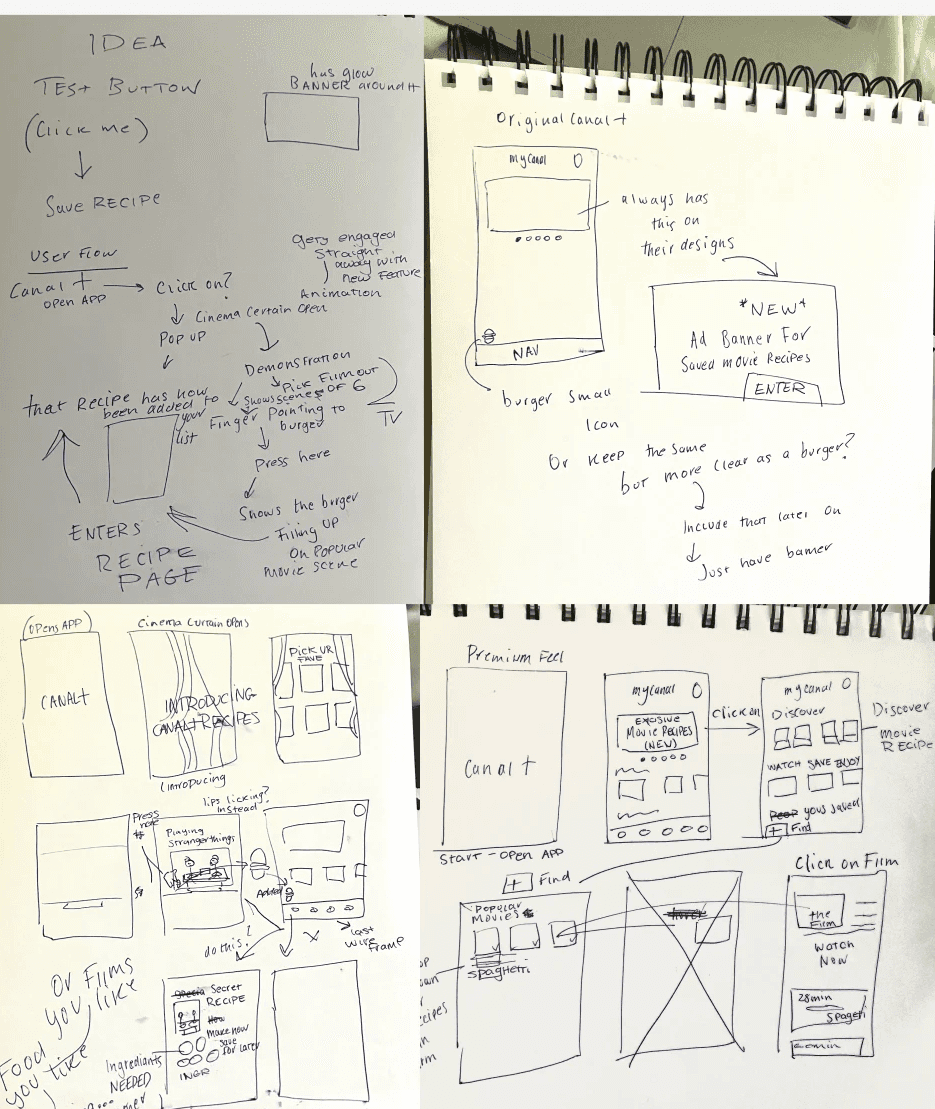 IDEA
TEST BUTTON
(Click me)
Save RECIPE
has glow
BANNER around it
User Flow
Canal +
OPEN APP
Click on?
Gets engaged
Straight
away with
new Feature
Animation
Cinema Certain open
POP UP
Demonstration
Pick Film out
OF 6
Shows scenes
Finger Pointing to
burger
TV
that Recipe has now
been added to
your
list
Press here
Shows the burger
Filling UP
On Popular
Movie scene
ENTERS
RECIPE
PAGE
Original Canal +
my Canal
always has
this on
their designs
NAV
*NEW*
Ad Banner For
Saved Movie Recipes
ENTER
burger Small
Icon
Or Keep the Same
but more clear as a burger?
Include that later on
Just have banner
OPENS APP
CANAL+
Cinema Curtain OPENS
INTRODUCING
CANAL+ RECIPES
(Introducing
PICK UR
FAVE
Press
Playing
Stranger things
lips licking?
Instead
Added
do this!
last
wire
frame
Or Films
you like
Food
you like
Secret
RECIPE
Make now
Save
for later
INGR
Ingrediants
NEEDED
Premium Feel
Canal +
START - OPEN APP
my Canal
EXCISIVE
MOVIE RECIPES
(NEW)
Click on
my Canal
Discover
WATCH SAVE ENJOY
your saved
+ Find
Discover
movie
RECIPE
+ Find
POPULAR
Movies
Spaghetti
Click on Film
the
Film
WATCH
NOW
28min
Spageti